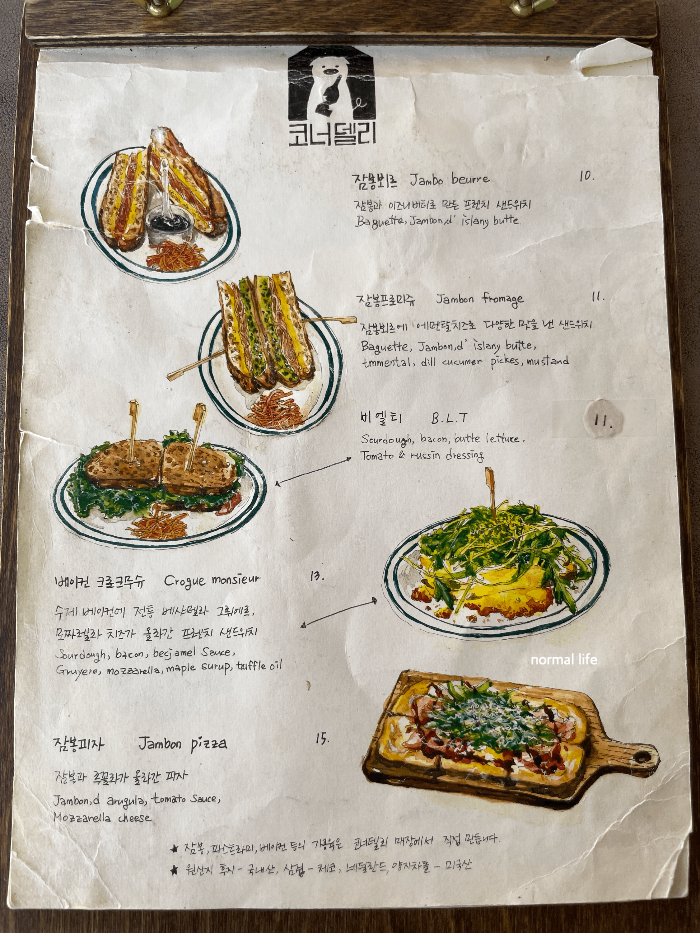 코너델리
잠봉뵈르 Jambo beurre 10.
잠봉과 이즈니버터로 만든 프렌치 샌드위치
Baguette, Jambon,d' islany butte
잠봉프로마쥬 Jambon fromage 11.
잠봉뵈르에 에멘탈치즈로 다양한 맛을 낸 샌드위치
Baguette, Jambon,d' islany butte,
Emmental, dill cucumer pickes, mustand
비엘티 B.L.T 11.
Sourdough, bacon, butte lettuce.
Tomato & russin dressing
베이컨 크로크무슈 Crogue monsieur 13.
수제 베이컨에 전통 베샤멜과 그뤼에르,
모짜렐라 치즈가 올라간 프렌치 샌드위치
Sourdough, bacon, becjamel Sauce,
Gruyere, mozzarella, maple surup, tuffle oil
normal life
잠봉피자 Jambon pizza 15.
잠봉과 루꼴라가 올라간 피자
Jambon,d arugula, tomato Sauce,
Mozzarella cheese
★ 잠봉, 파스트라미, 베이컨 등의 가공육은 코너델리 매장에서 직접 만듭니다.
★ 원산지 후지 - 국내산, 삼겹 - 체코, 네덜란드, 양지차돌 - 미국산